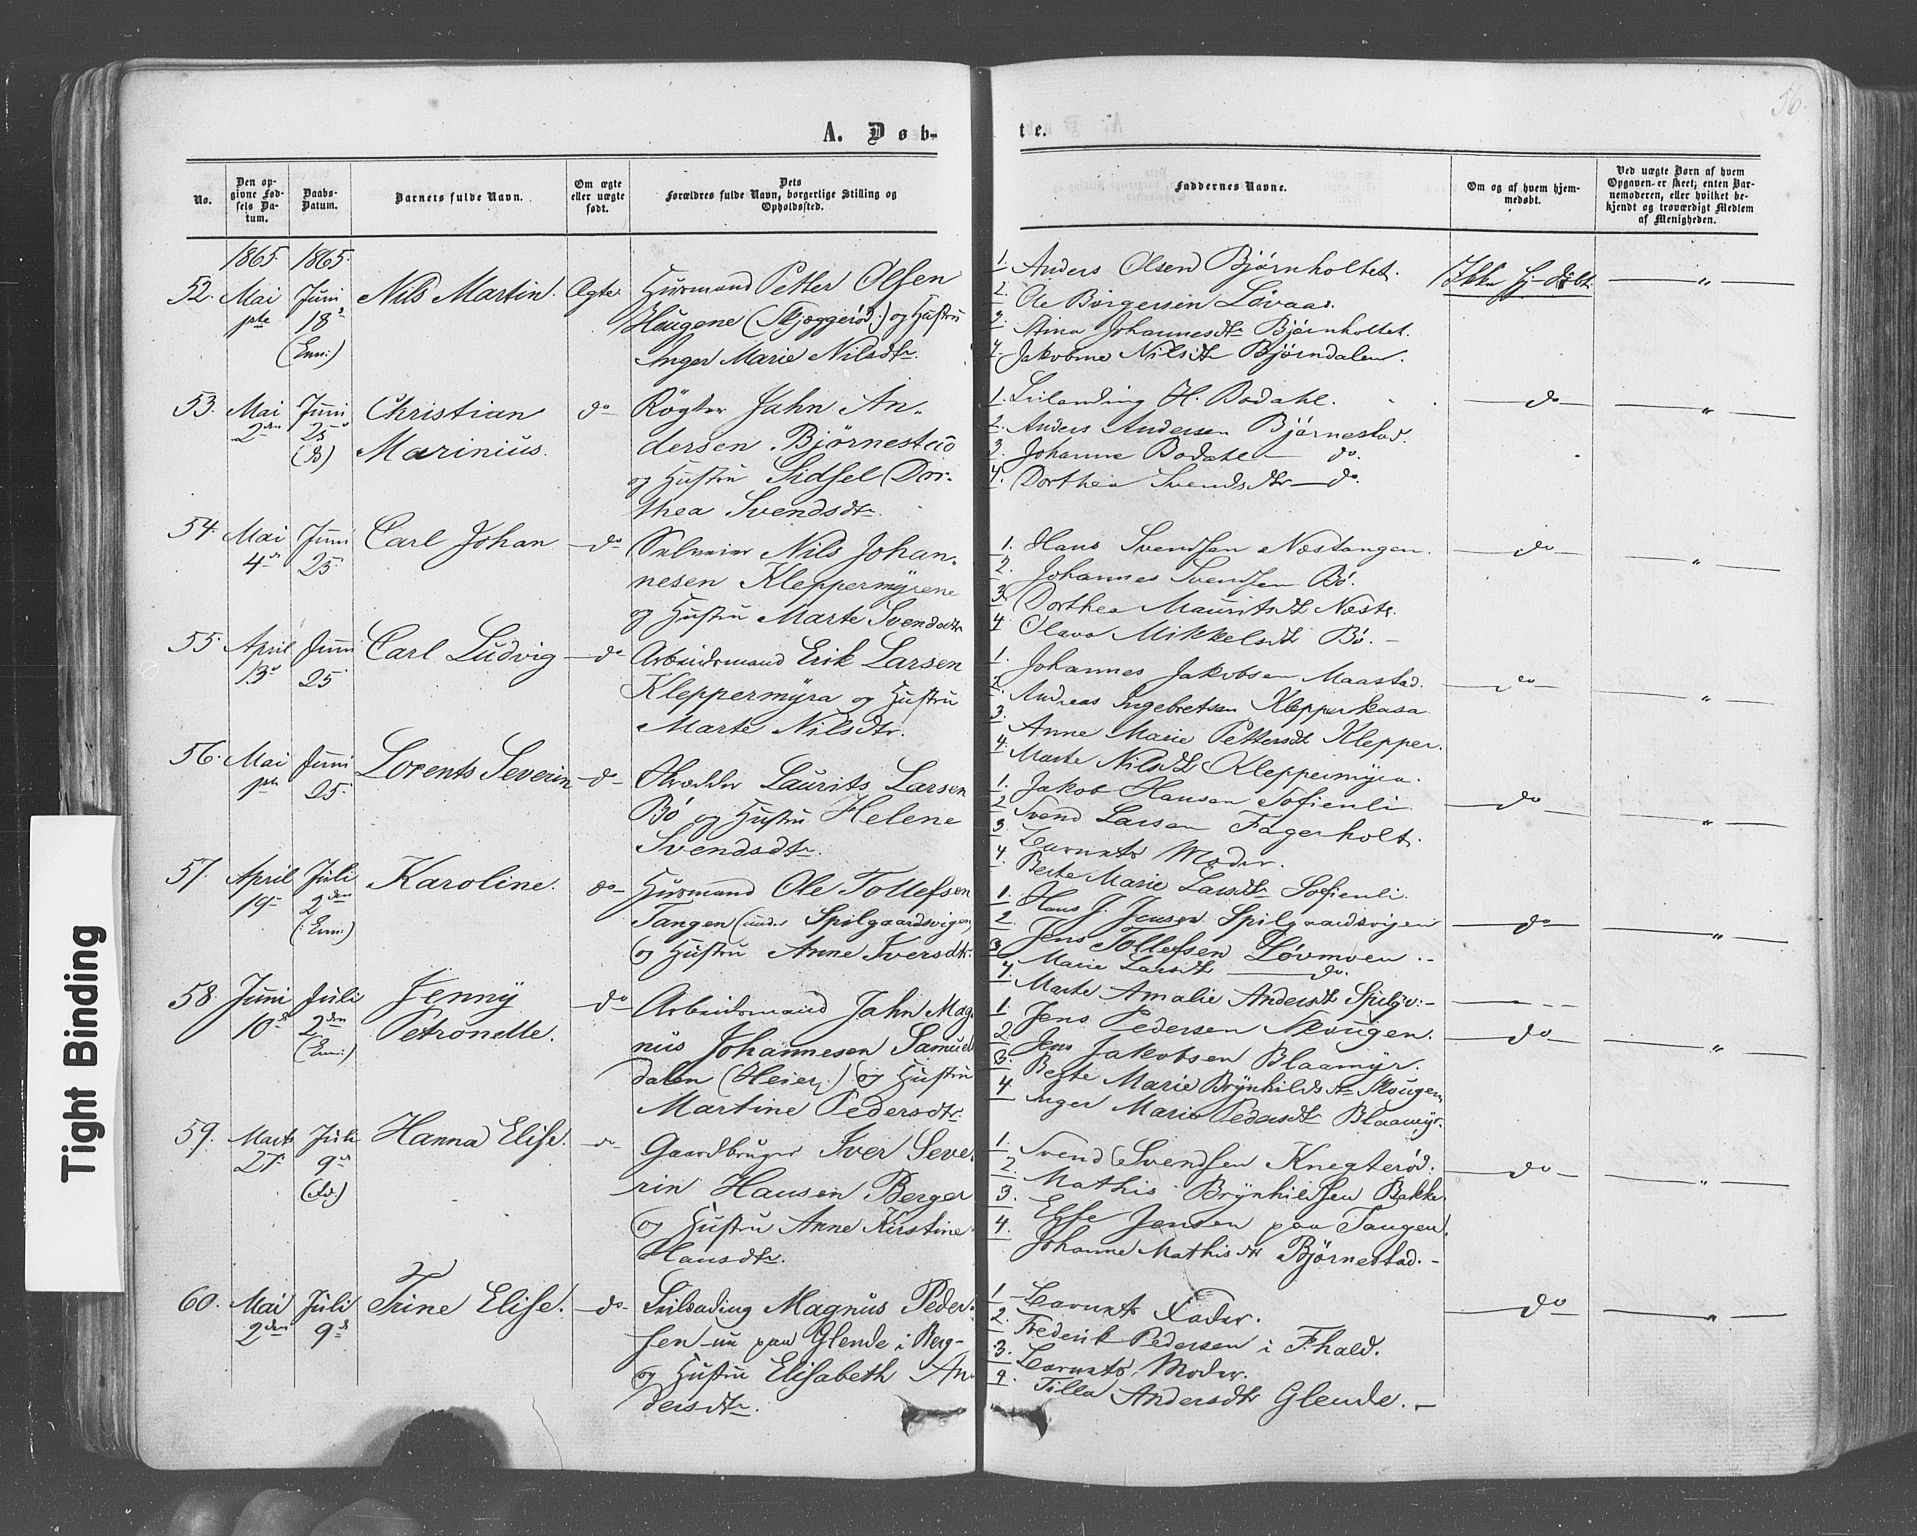 56.
A. Døb-
te.
No.
Den opgivne Fødsels Datum.
Daabs-Datum.
Barnets fulde Navn.
Om ægte eller uægte født.
Dets Forældres fulde Navn, borgerlige Stilling og Opholdssted.
Faddernes Navne.
Om og af hvem hjemmedøbt.
Ved uægte Børn af hvem Opgaven er skeet; enten Barnemoderen, eller hvilket bekjendt og troværdigt Medlem af Menigheden.
1865. 1865.
52. Mai 1ste Juni 18 (Enn:) Nils Martin. Ægte
Huusmand Petter Olsen
Haugene (Skjæggerød:) og Hustru
Inger Marie Nilsdtr.
1. Anders Olsen Bjørnholtet.
2. Ole Børgersen Løvaas.
3. Stina Johannesdtr Bjørnholtet.
4. Jakobine Nilsdtr Bjørndalen.
Ikke Hj. døbt.
"
53. Mai 2den Juni 25 Christian
Marinius. do
Røgter Jahn An-
dersen Bjørnestad
og Hustru Sidsel Dor-
thea Svendsdtr.
1. H. Bodahl.
2. Anders Andersen Bjørnestad.
3. Johanne Bodahl do.
4. Dorthea Svendsdtr do.
do
"
54. Mai 4de Juni 25 Carl Johan do
Selveier Nils Johan-
nesen Kleppermyrene
og Hustru Marte Svendsdtr
1. Hans Svendsen Næstangen.
2. Johannes Svendsen Bø.
3. Dorthea Mauritsdtr Næst.
4. Olava Mikkelsdtr Bø.
do
"
55. April 13 Juni 25 Carl Ludvig do
Arbeidsmand Erik Larsen
Kleppermyra og Hustru
Marte Nilsdtr.
1. Johannes Jakobsen Maastad.
2. Andreas Ingebretsen Klepperkasa
3. Anne Marie Pettersdtr Klepper.
4. Marte Nilsdtr Kleppermyra.
do
"
56. Mai 1ste Juni 25. Lorents Severin do
Skrædder Laurits Larsen
Bø og Hustru Helene
Svendsdtr.
1. Jakob Hansen Sofienli
2. Svend Larsen Fagerholt.
3. Barnets Moder.
4. Berte Marie Larsdtr Sofienli.
do
"
57. April 19 Juli 2den (Enn:) Karoline. do
Huusmand Ole Tollefsen
Tangen (under Spilgaardsvigen)
og Hustru Anne Iversdtr.
1. Hans J. Jensen Spilgaardsvigen
2. Jens Tollefsen Løvmoen.
3. Marie Larsdtr do.
4. Marte Amalie Andersdtr Spilgv:
do
"
58. Juni 10de Juli 2den (Enn:) Jenny
Petronelle. do
Arbeidsmand Jahn Mag-
nus Johannesen Samuel
dalen (Heier:) og Hustru
Martine Pedersdtr.
1. Jens Pedersen Skougen.
2. Jens Jakobsen Blaamyr.
3. Berte Marie Brynhildsdtr Skougen
4. Inger Marie Pedersdtr Blaamyr.
do
"
59. Marts 27. Juli 9de Hanna Elise. do
Gaardbruger Iver Seve-
rin Hansen Berger
og Hustru Anne Kirstine
Hansdtr.
1. Svend Svendsen Knegterød.
2. Mathis Brynhildsen Bakke.
3. Else Jensen paa Tangen.
4. Johanne Mathisdtr Bjørnestad.
do
"
60. Mai 2den Juli 9de Trine Elise. do
Magnus Peder-
sen nu paa Glende i Berg
og Hustru Elisabeth An-
dersdtr.
1. Barnets Fader.
2. Frederik Pedersen i F.hald.
3. Barnets Moder.
4. Tilla Andersdtr Glende.
do
"
Tight Binding